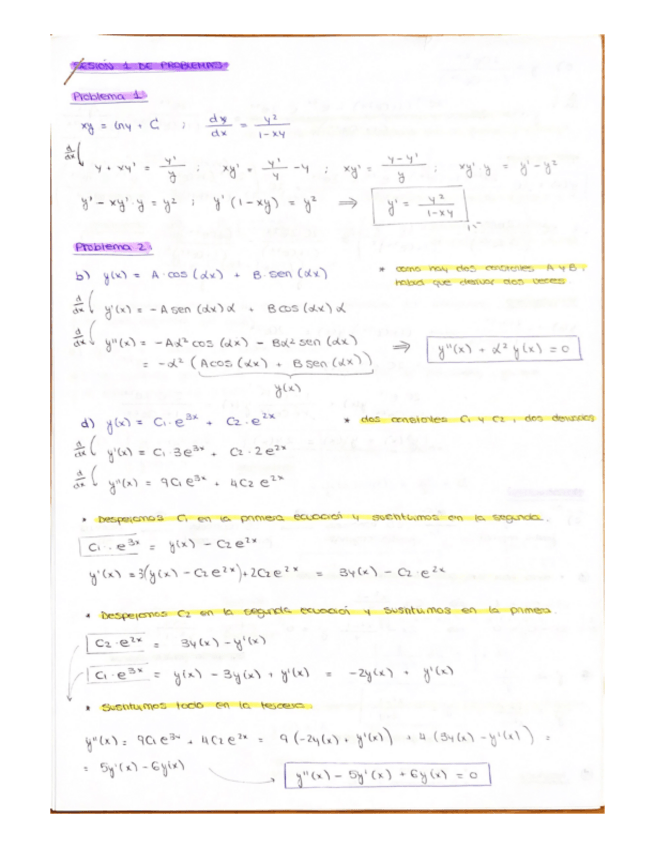 SESIÓN 1 DE PROBLEMAS
Problema 1
xy = lny + C ; dy/dx = y²/1-xy
d/dx y + xy' = y'/y ; xy' = y'/y - y ; xy' = y-y'/y ; xy'·y = y'-y²
y' - xy'·y = y² ; y'(1-xy) = y² ⇒ y' = y²/1-xy
Problema 2
b) y(x) = A·cos(αx) + B·sen(αx) * como hay dos constantes A y B,
habrá que derivar dos veces
d/dx y'(x) = -A sen(αx)α + B cos(αx)α
d/dx y''(x) = -Aα² cos(αx) - Bα² sen(αx)
= -α² (A cos(αx) + B sen(αx)) ⇒ y''(x) + α² y(x) = 0
y(x)
d) y(x) = C₁·e³ˣ + C₂·e²ˣ * dos constantes C₁ y C₂, dos derivadas
d/dx y'(x) = C₁·3e³ˣ + C₂·2e²ˣ
d/dx y''(x) = 9C₁e³ˣ + 4C₂e²ˣ
* Despejamos C₁ en la primera ecuació y sustituimos en la segunda.
C₁·e³ˣ = y(x) - C₂e²ˣ
y'(x) = 3(y(x) - C₂e²ˣ) + 2C₂e²ˣ = 3y(x) - C₂·e²ˣ
* Despejamos C₂ en la segunda ecuació y sustitumos en la primera
C₂·e²ˣ = 3y(x) - y'(x)
C₁·e³ˣ = y(x) - 3y(x) + y'(x) = -2y(x) + y'(x)
* Sustitumos todo en la tercera.
y''(x) = 9C₁e³ˣ + 4C₂e²ˣ = 9(-2y(x) + y'(x)) + 4(3y(x) - y'(x)) =
= 5y'(x) - 6y(x) → y''(x) - 5y'(x) + 6y(x) = 0